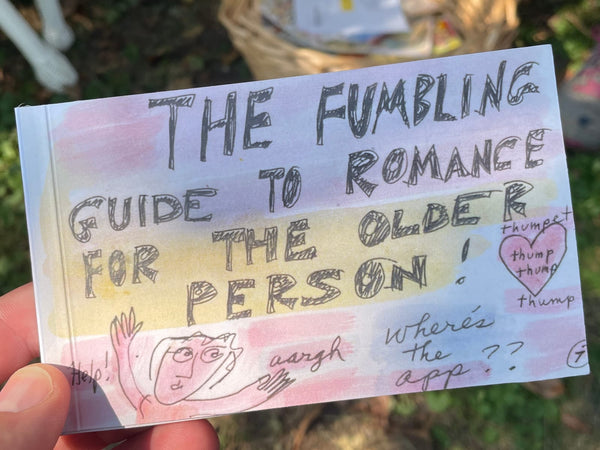 THE FUMBLING
GUIDE TO ROMANCE
FOR THE OLDER
PERSON!
thumpet
thump
thump
thump
Help!
aargh
Where's
the
app??